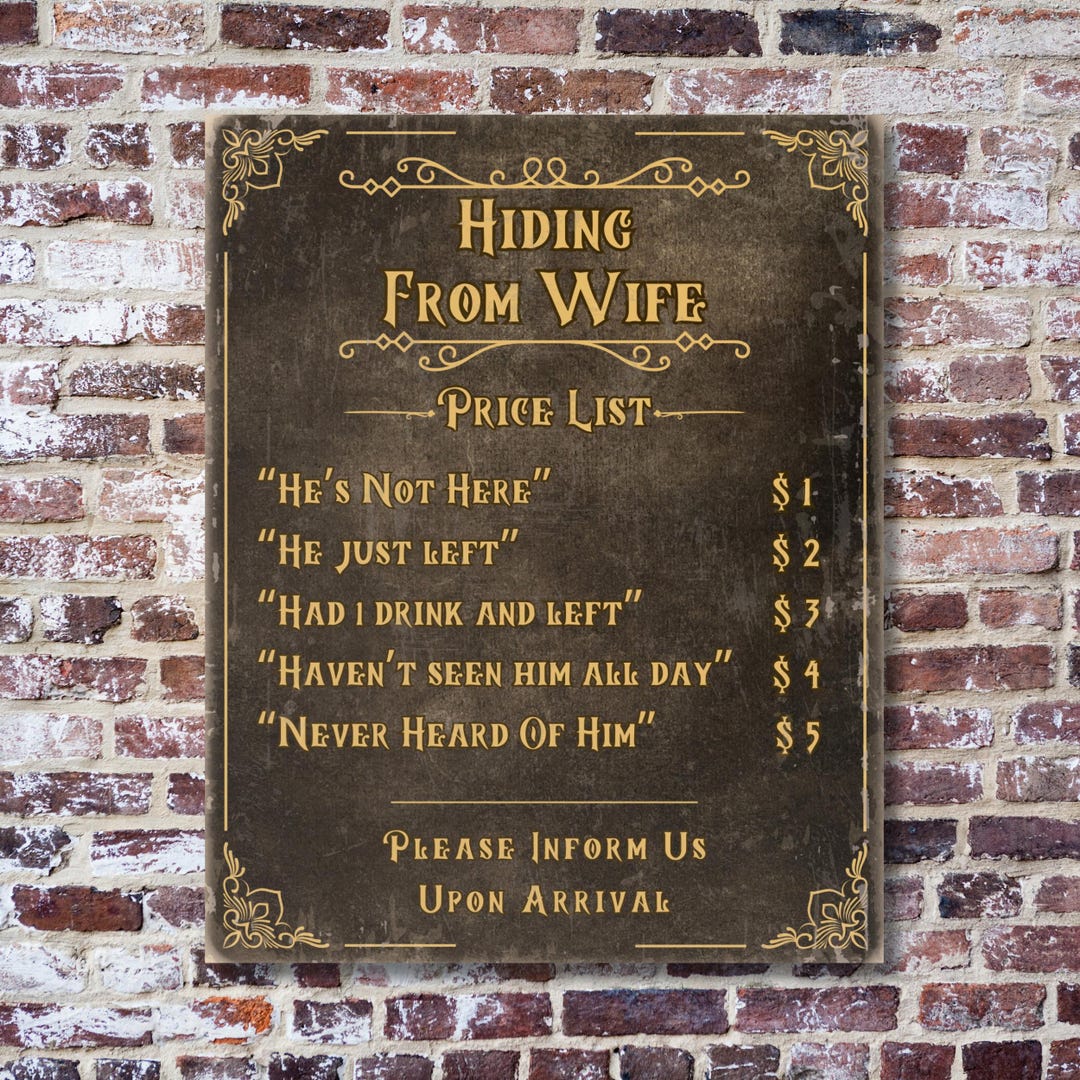 Hiding
From Wife
Price List
"He's Not Here" $1
"He just left" $2
"Had 1 drink and left" $3
"Haven't seen him all day" $4
"Never Heard Of Him" $5
Please Inform Us
Upon Arrival